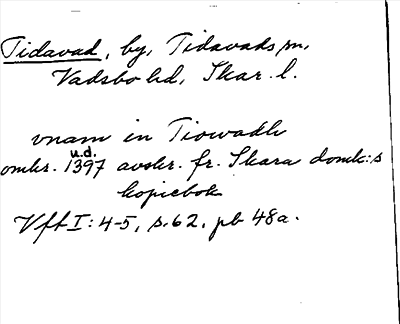 Tidavad, by, Tidavads sn,
Vadsbo hd, Skar. l.
vnam in Tiowadh
u.d.
omkr. 1397 avskr. fr. Skara domk:s
kopiebok
Vff I: 4-5, s. 62, pb 48a.